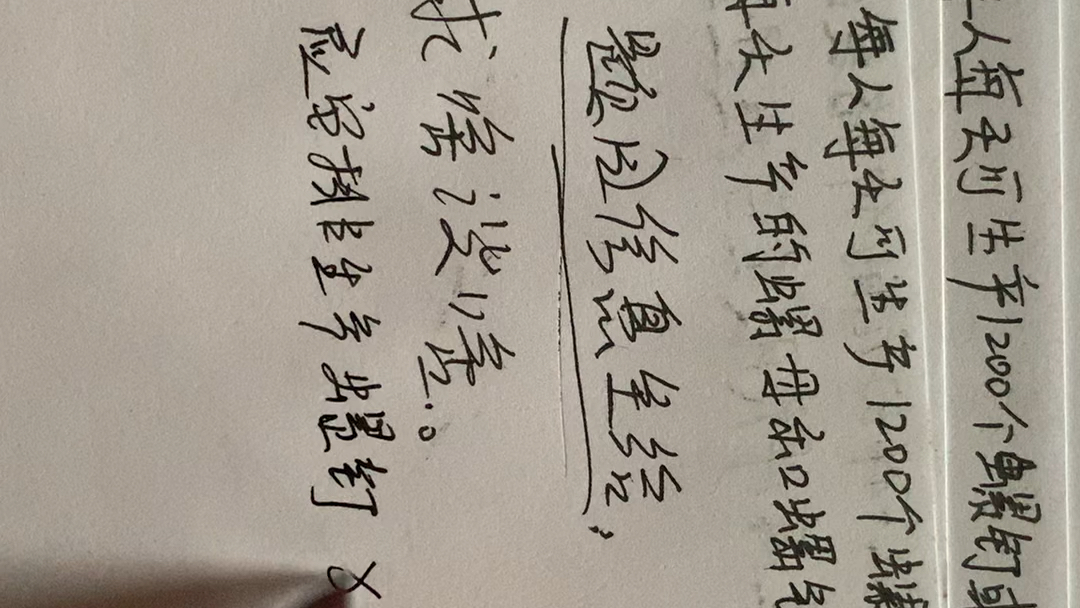 人每天可生产1200个螺钉或
每人每天可生产1200个螺
每天生产的螺母和螺钉
题应信息全给,
求啥设啥。
应安排生产螺钉 x